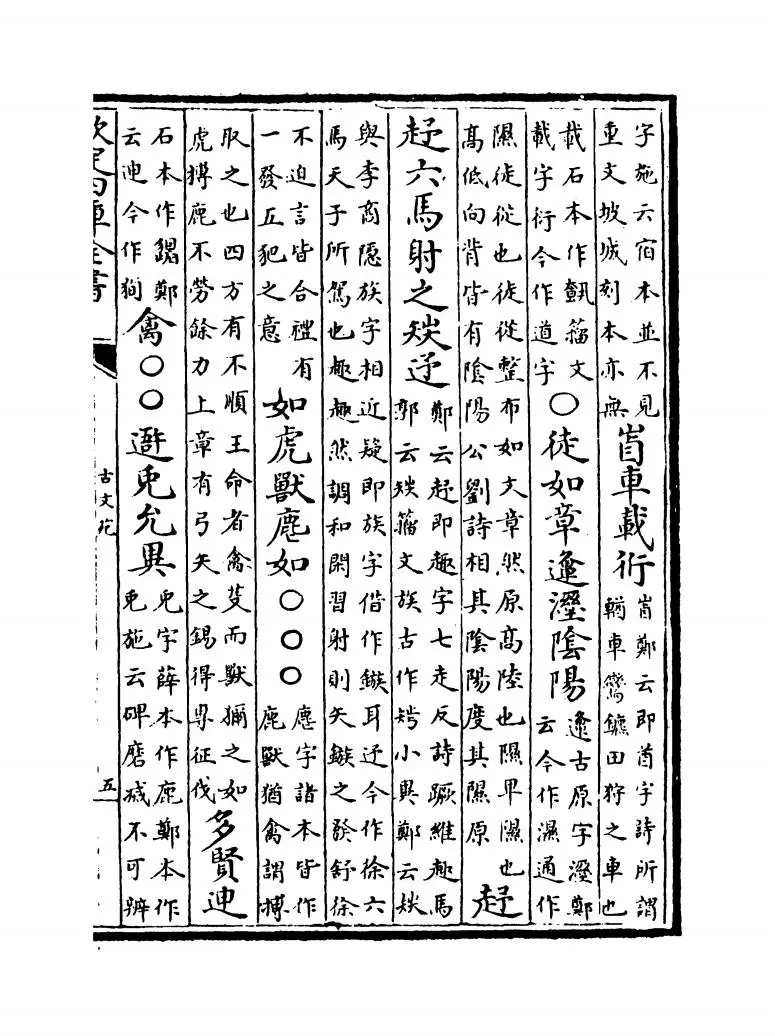 字施云宿本並不見
重文坡城刻本亦無
車載衍
鄭云即首字詩所謂
輶車鸞鑣田狩之車也
載石本作籒文
載字衍今作道字
○徒如章邍溼陰陽
邍古原字溼鄭
云今作濕通作
隰徒從也徒從整布如文章然原髙陸也隰卑隰也
髙低向背皆有陰陽公劉詩相其陰陽度其隰原
趍
趍六馬射之㷎迂
鄭云趍即趣字七走反詩蹶維趣馬
郭云㷎籒文族古作小異鄭云㷎
與李商隱族字相近疑即族字借作鏃耳迂今作徐六
馬天子所駕也趣趣然調和閑習射則矢鏃之發舒徐
不迫言皆合禮有
一發五豝之意
如虎獸鹿如○○○
鹿字諸本皆作
鹿獸猶禽謂搏
取之也四方有不順王命者禽芟而獸獮之如
虎搏鹿不勞餘力上章有弓矢之錫得専征伐
多賢迧
石本作鄭
云迧今作徇
禽○○遊兔允異
兔字薛本作鹿鄭本作
兔施云碑磨滅不可辨
欽定四庫全書
古文苑
五